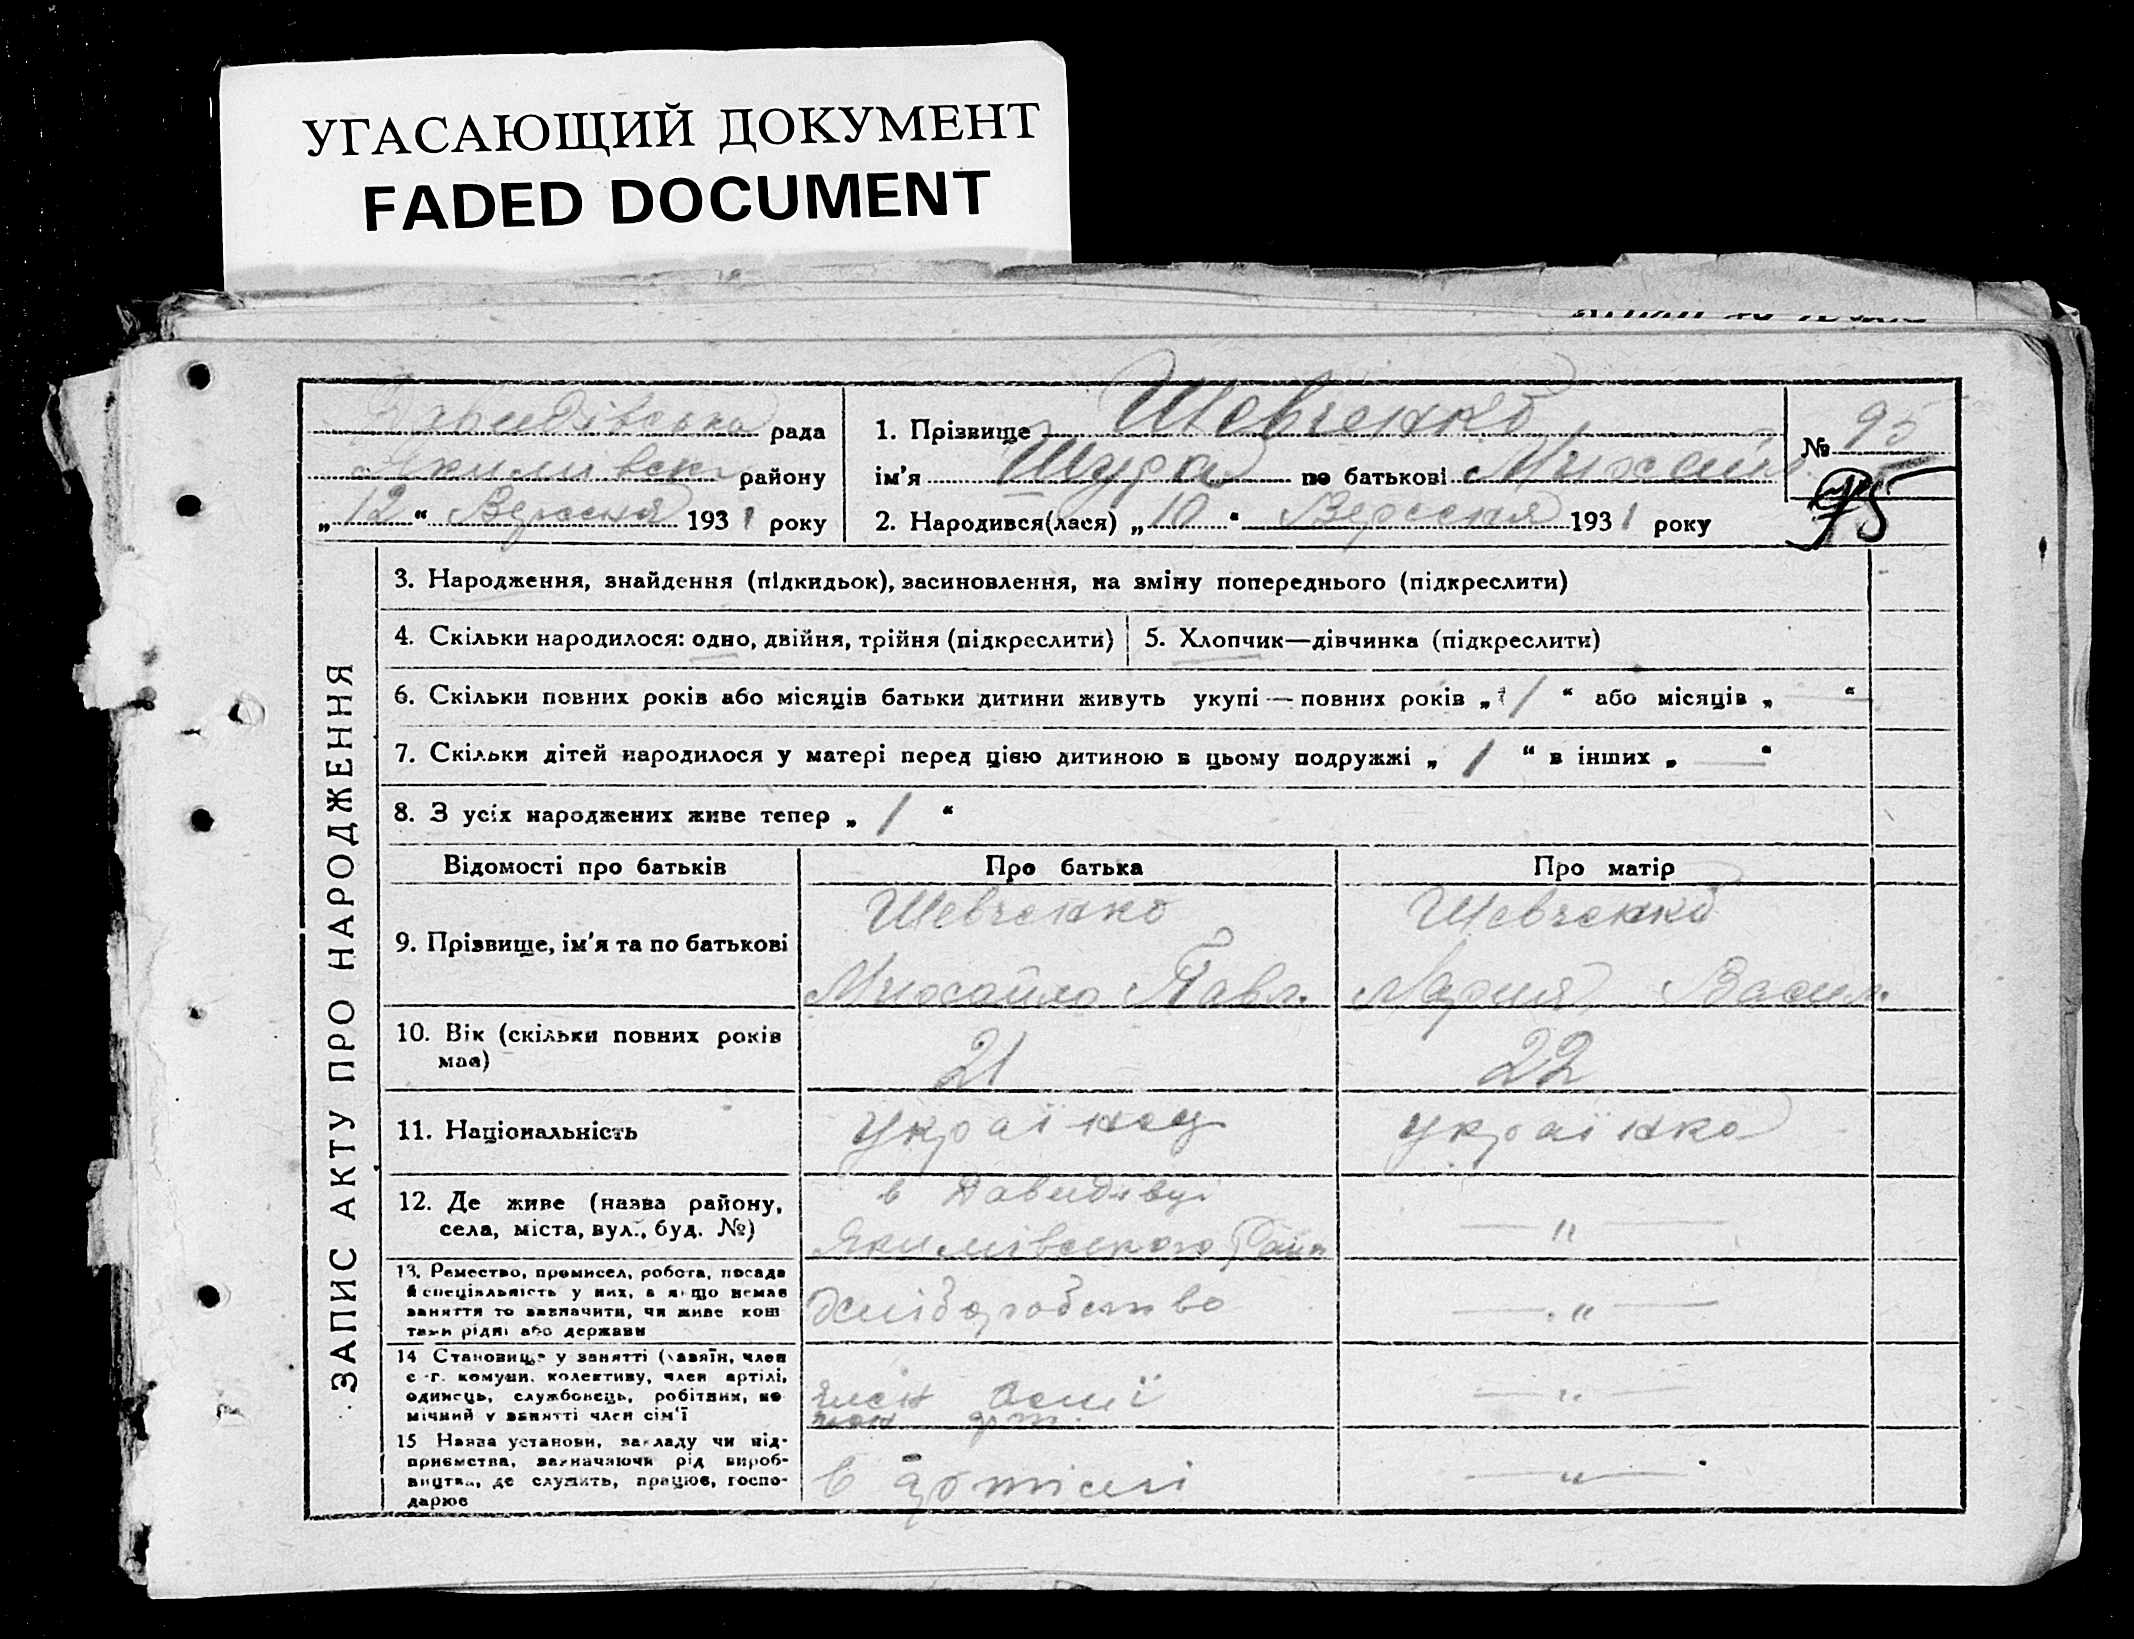 УГАСАЮЩИЙ ДОКУМЕНТ
FADED DOCUMENT
Давидівська рада
Якимівськ району
„ 12 “ Вересня 1931 року
1. Прізвище Шевченко
ім'я Шура по батькові Михайл.
2. Народився(лася) „ 10 “ Вересня 1931 року
№ 95
95
ЗАПИС АКТУ ПРО НАРОДЖЕННЯ
3. Народження, знайдення (підкидьок), засиновлення, на зміну попереднього (підкреслити)
4. Скільки народилося: одно, двійня, трійня (підкреслити)
5. Хлопчик—дівчинка (підкреслити)
6. Скільки повних років або місяців батьки дитини живуть укупі — повних років „ 1 “ або місяців „ — “
7. Скільки дітей народилося у матері перед цією дитиною в цьому подружжі „ 1 “ в інших „ — “
8. З усіх народжених живе тепер „ 1 “
Відомості про батьків
Про батька
Про матір
9. Прізвище, ім'я та по батькові
Шевченко
Михайло Павл.
Шевченко
Мария Васил.
10. Вік (скільки повних років
має)
21
22
11. Національність
Українец
Українка
12. Де живе (назва району,
села, міста, вул., буд. №)
в Давидівці
Якимівського Райн
— „ —
13. Ремество, промисел, робота, посада
й спеціяльність у них, а якщо немає
заняття то зазначити, чи живе кош
тами рідні або держави
Хліборобство
— „ —
14 Становище у занятті (хазяїн, член
с.-г. комуни, колективу, член артілі,
одинець, службовець, робітник, по
мічний у занятті член сім'ї
член
член арт.
— „ —
15 Назва установи, закладу чи під-
приємства, зазначаючи рід вироб-
ництва, де служить, працює, госпо-
дарює
в артілі
— „ —